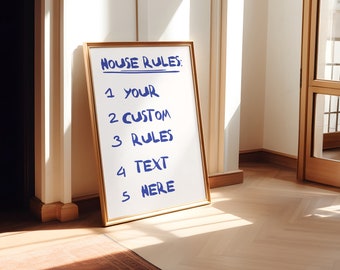 HOUSE RULES:
1 YOUR
2 CUSTOM
3 RULES
4 TEXT
5 HERE